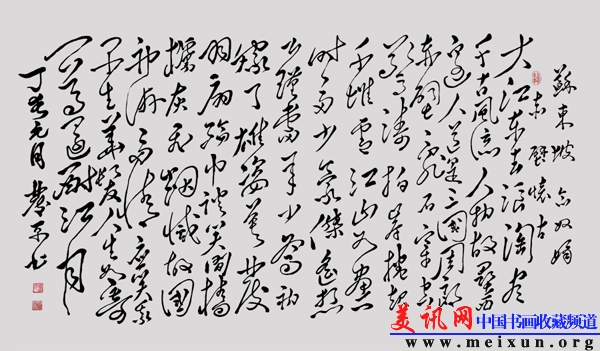 蘇東坡念奴嬌
赤壁懷古
大江东去浪淘尽
千古風流人物故壘西
邊人道是三國周郎
赤壁乱石穿空
驚濤拍岸捲起
千堆雪江山如畫一
時多少豪傑遥想
公瑾當年小喬初
嫁了雄姿英发
羽扇綸巾谈笑間檣
櫓灰飞烟灭故國
神游多情應笑我
早生華髮人生如寄
一尊還酹江月
丁亥元月
美讯网 中国书画收藏频道
www.meixun.org